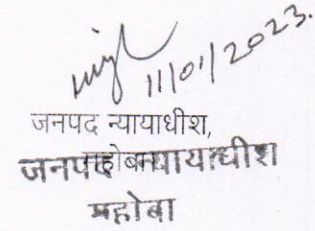 11/01/2023.
जनपद न्यायाधीश,
महोबा
जनपद न्यायाधीश
महोबा